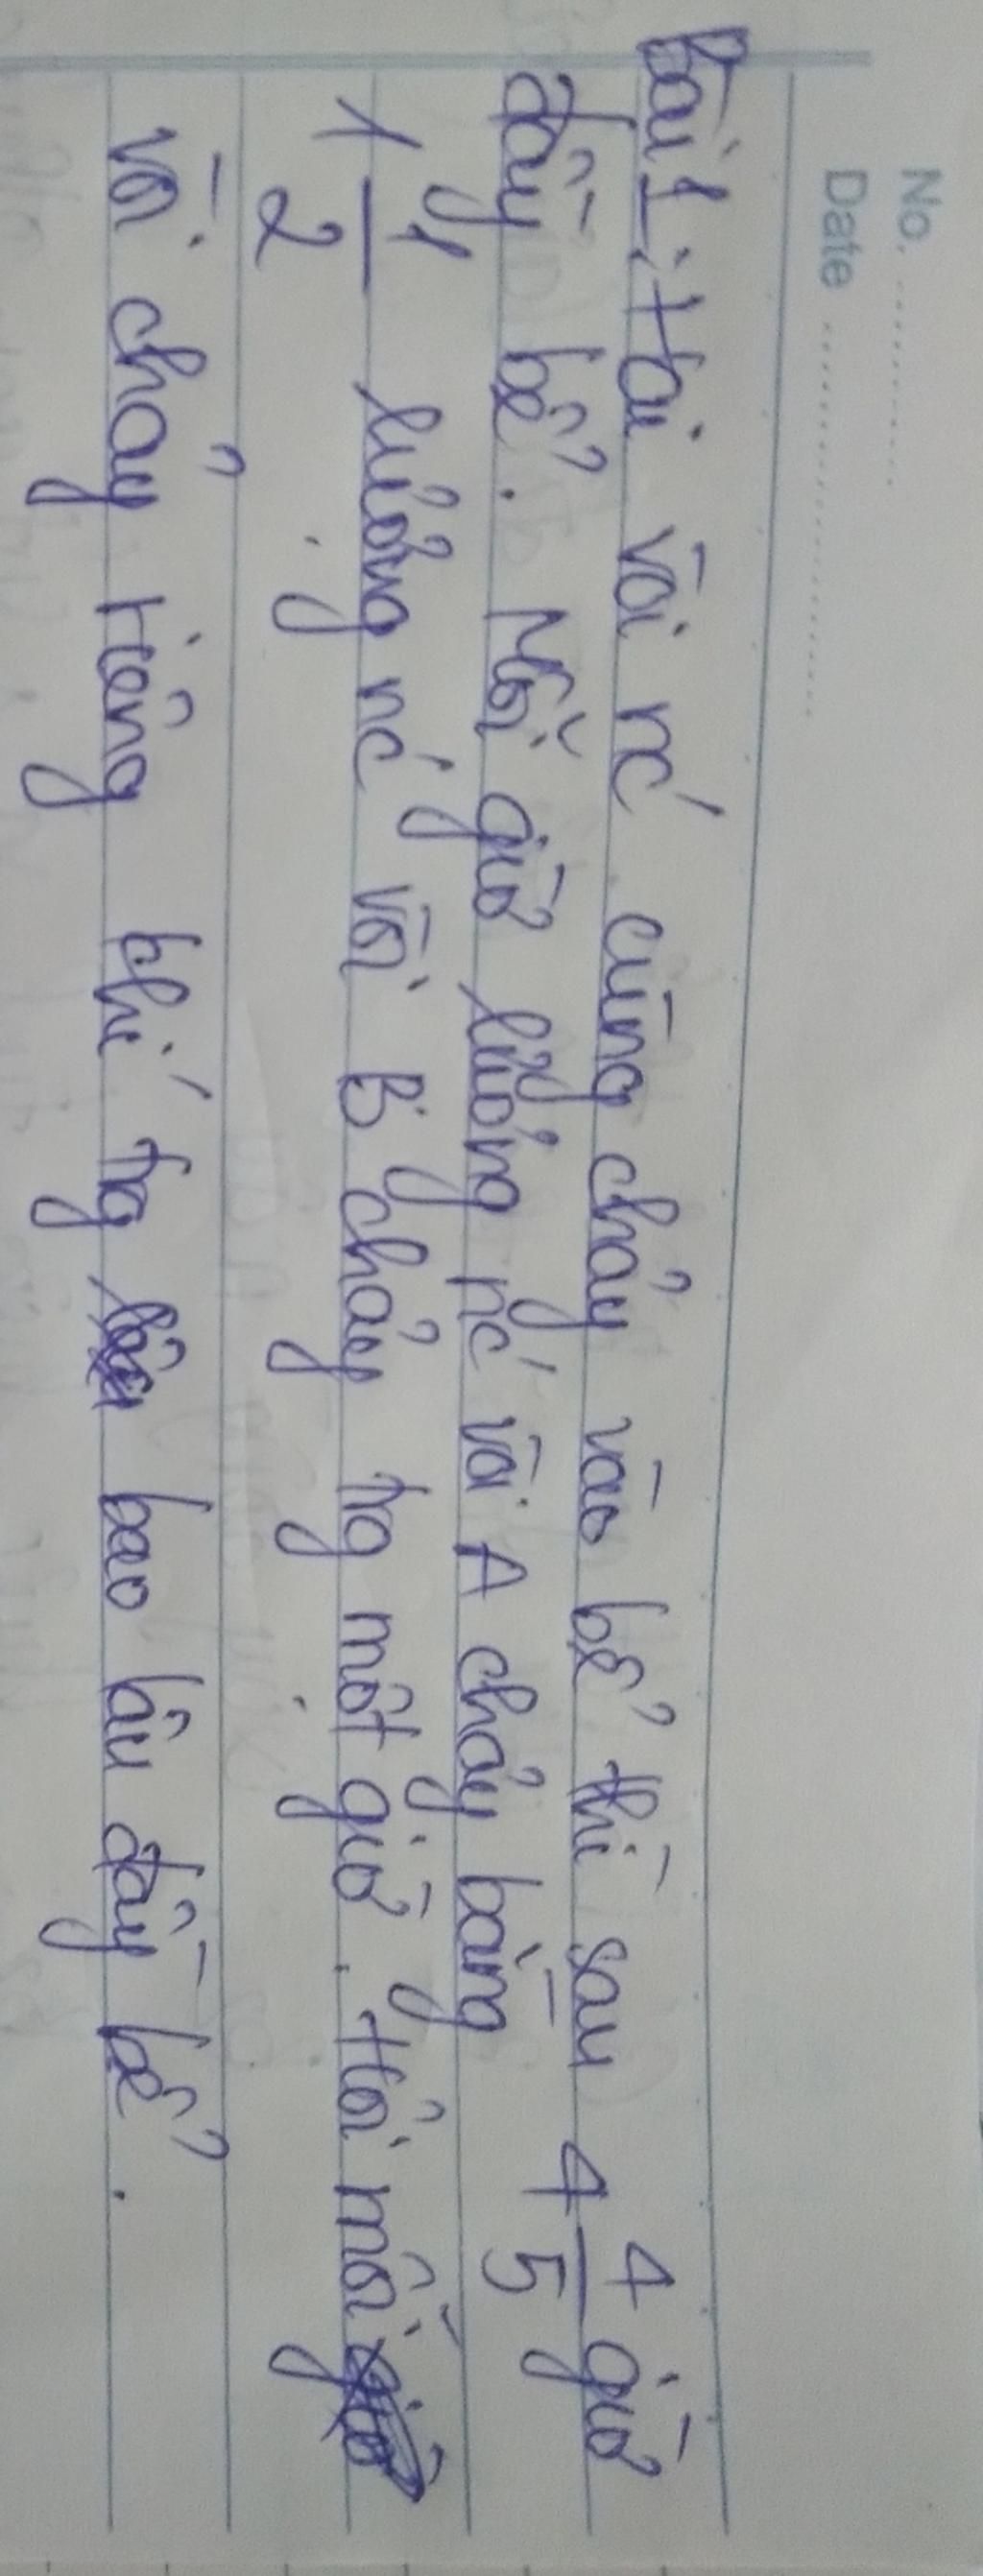 No. ............
Date ........................
Bài 1: Hai vòi nć cùng chảy vào bể thì sau 4 4/5 giờ
đầy bể. Mỗi giờ lượng nć vòi A chảy bằng
1 1/2 lượng nć vòi B chảy tg một giờ. Hỏi mỗi
vòi chảy riêng thì tg bao lâu đầy bể.